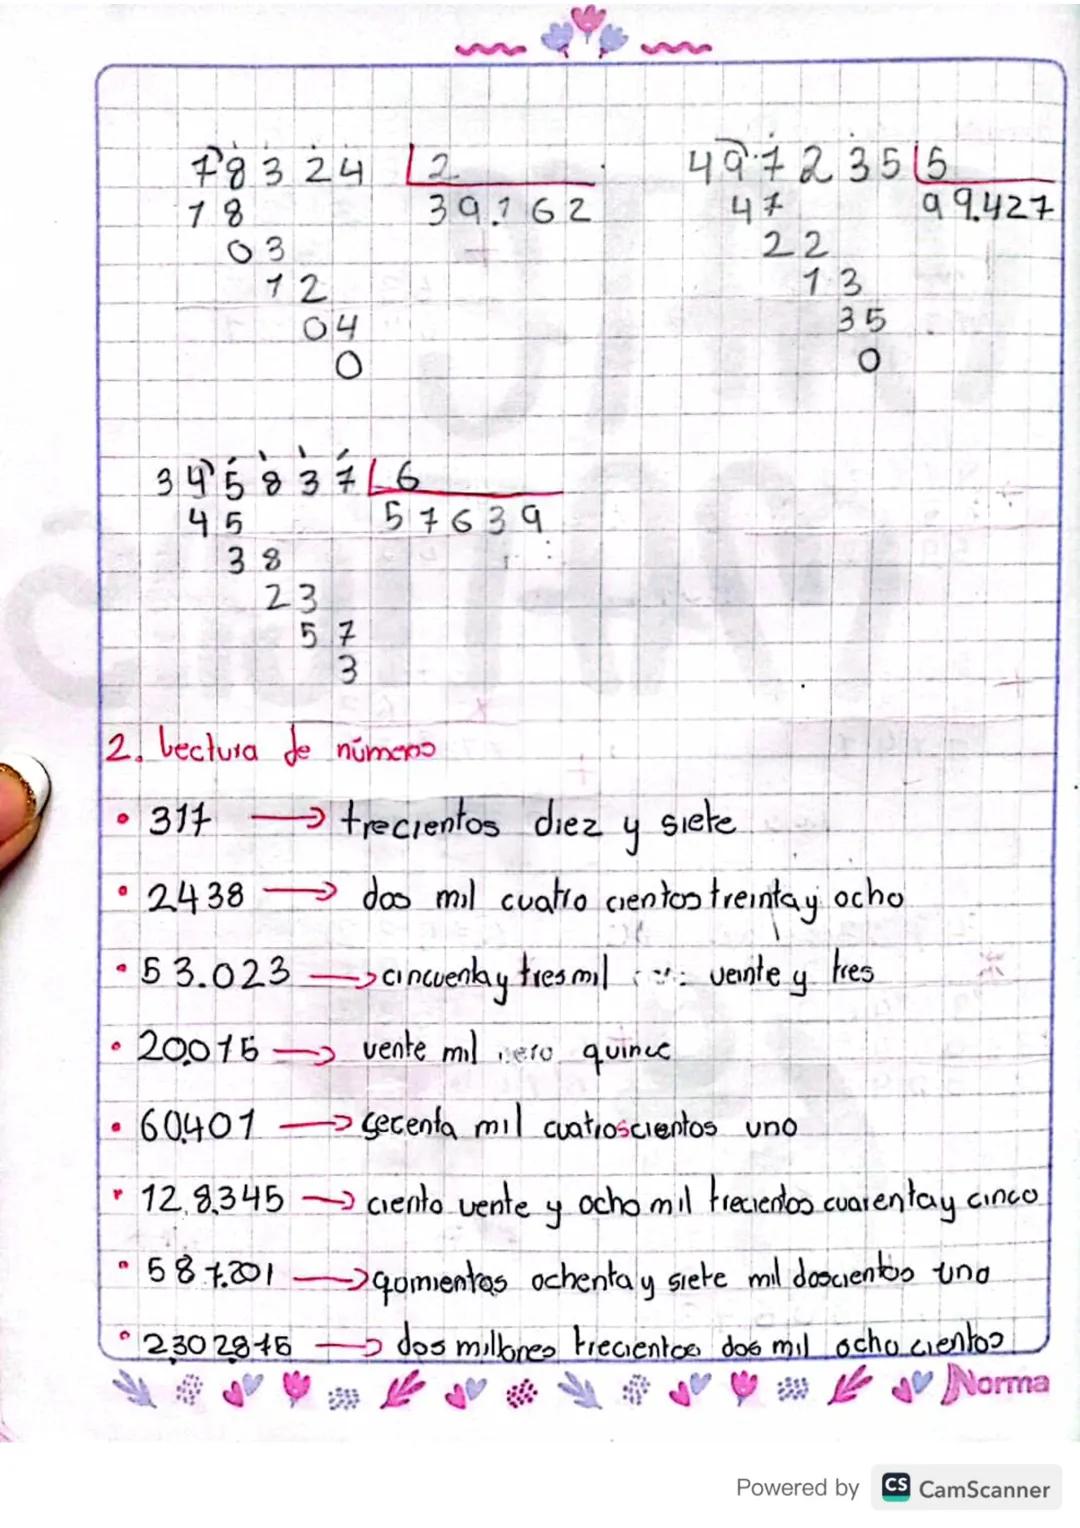 78324 2 497235 5
18 39.162 47 99.427
03 22
12 13
04 35
0 0
345837 6
45 57639
38
23
57
3
2. Lectura de números
• 317 → trecientos diez y siete
• 2438 → dos mil cuatro cientos treinta y ocho
• 53.023 → cincuenta y tres mil veinte y tres
• 20015 → vente mil cero quince
• 60.401 → secenta mil cuatroscientos uno
• 128.345 → ciento vente y ocho mil trecientos cuarenta y cinco
• 587.201 → quinientas ochenta y siete mil doscientos uno
• 2302815 → dos millones trecientos dos mil ocho cientos
Norma
Powered by CS CamScanner